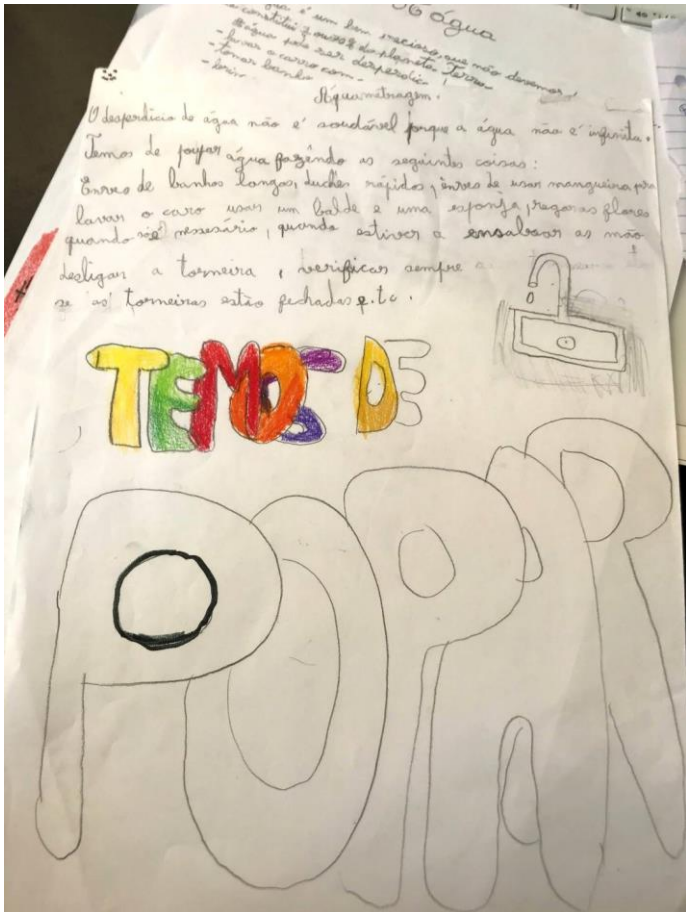 água
é um bem precioso, que não devemos
constitui do planeta Terra.
água pode ser desperdiça
- lavar o carro com
- tomar banho
Águametragem.
O desperdício de água não é saudável porque a água não é infinita.
Temos de poupar água fazendo as seguintes coisas:
Enves de banhos longos, duches rápidos, enves de usar mangueira pra
lavar o caro usar um balde e uma esponja, regar as flores
quando só é nessesário, quando estiver a ensaboar as mão
desligar a torneira, verificar sempre
se as torneiras estão fechadas e.tc.
TEMOS DE
POPAR